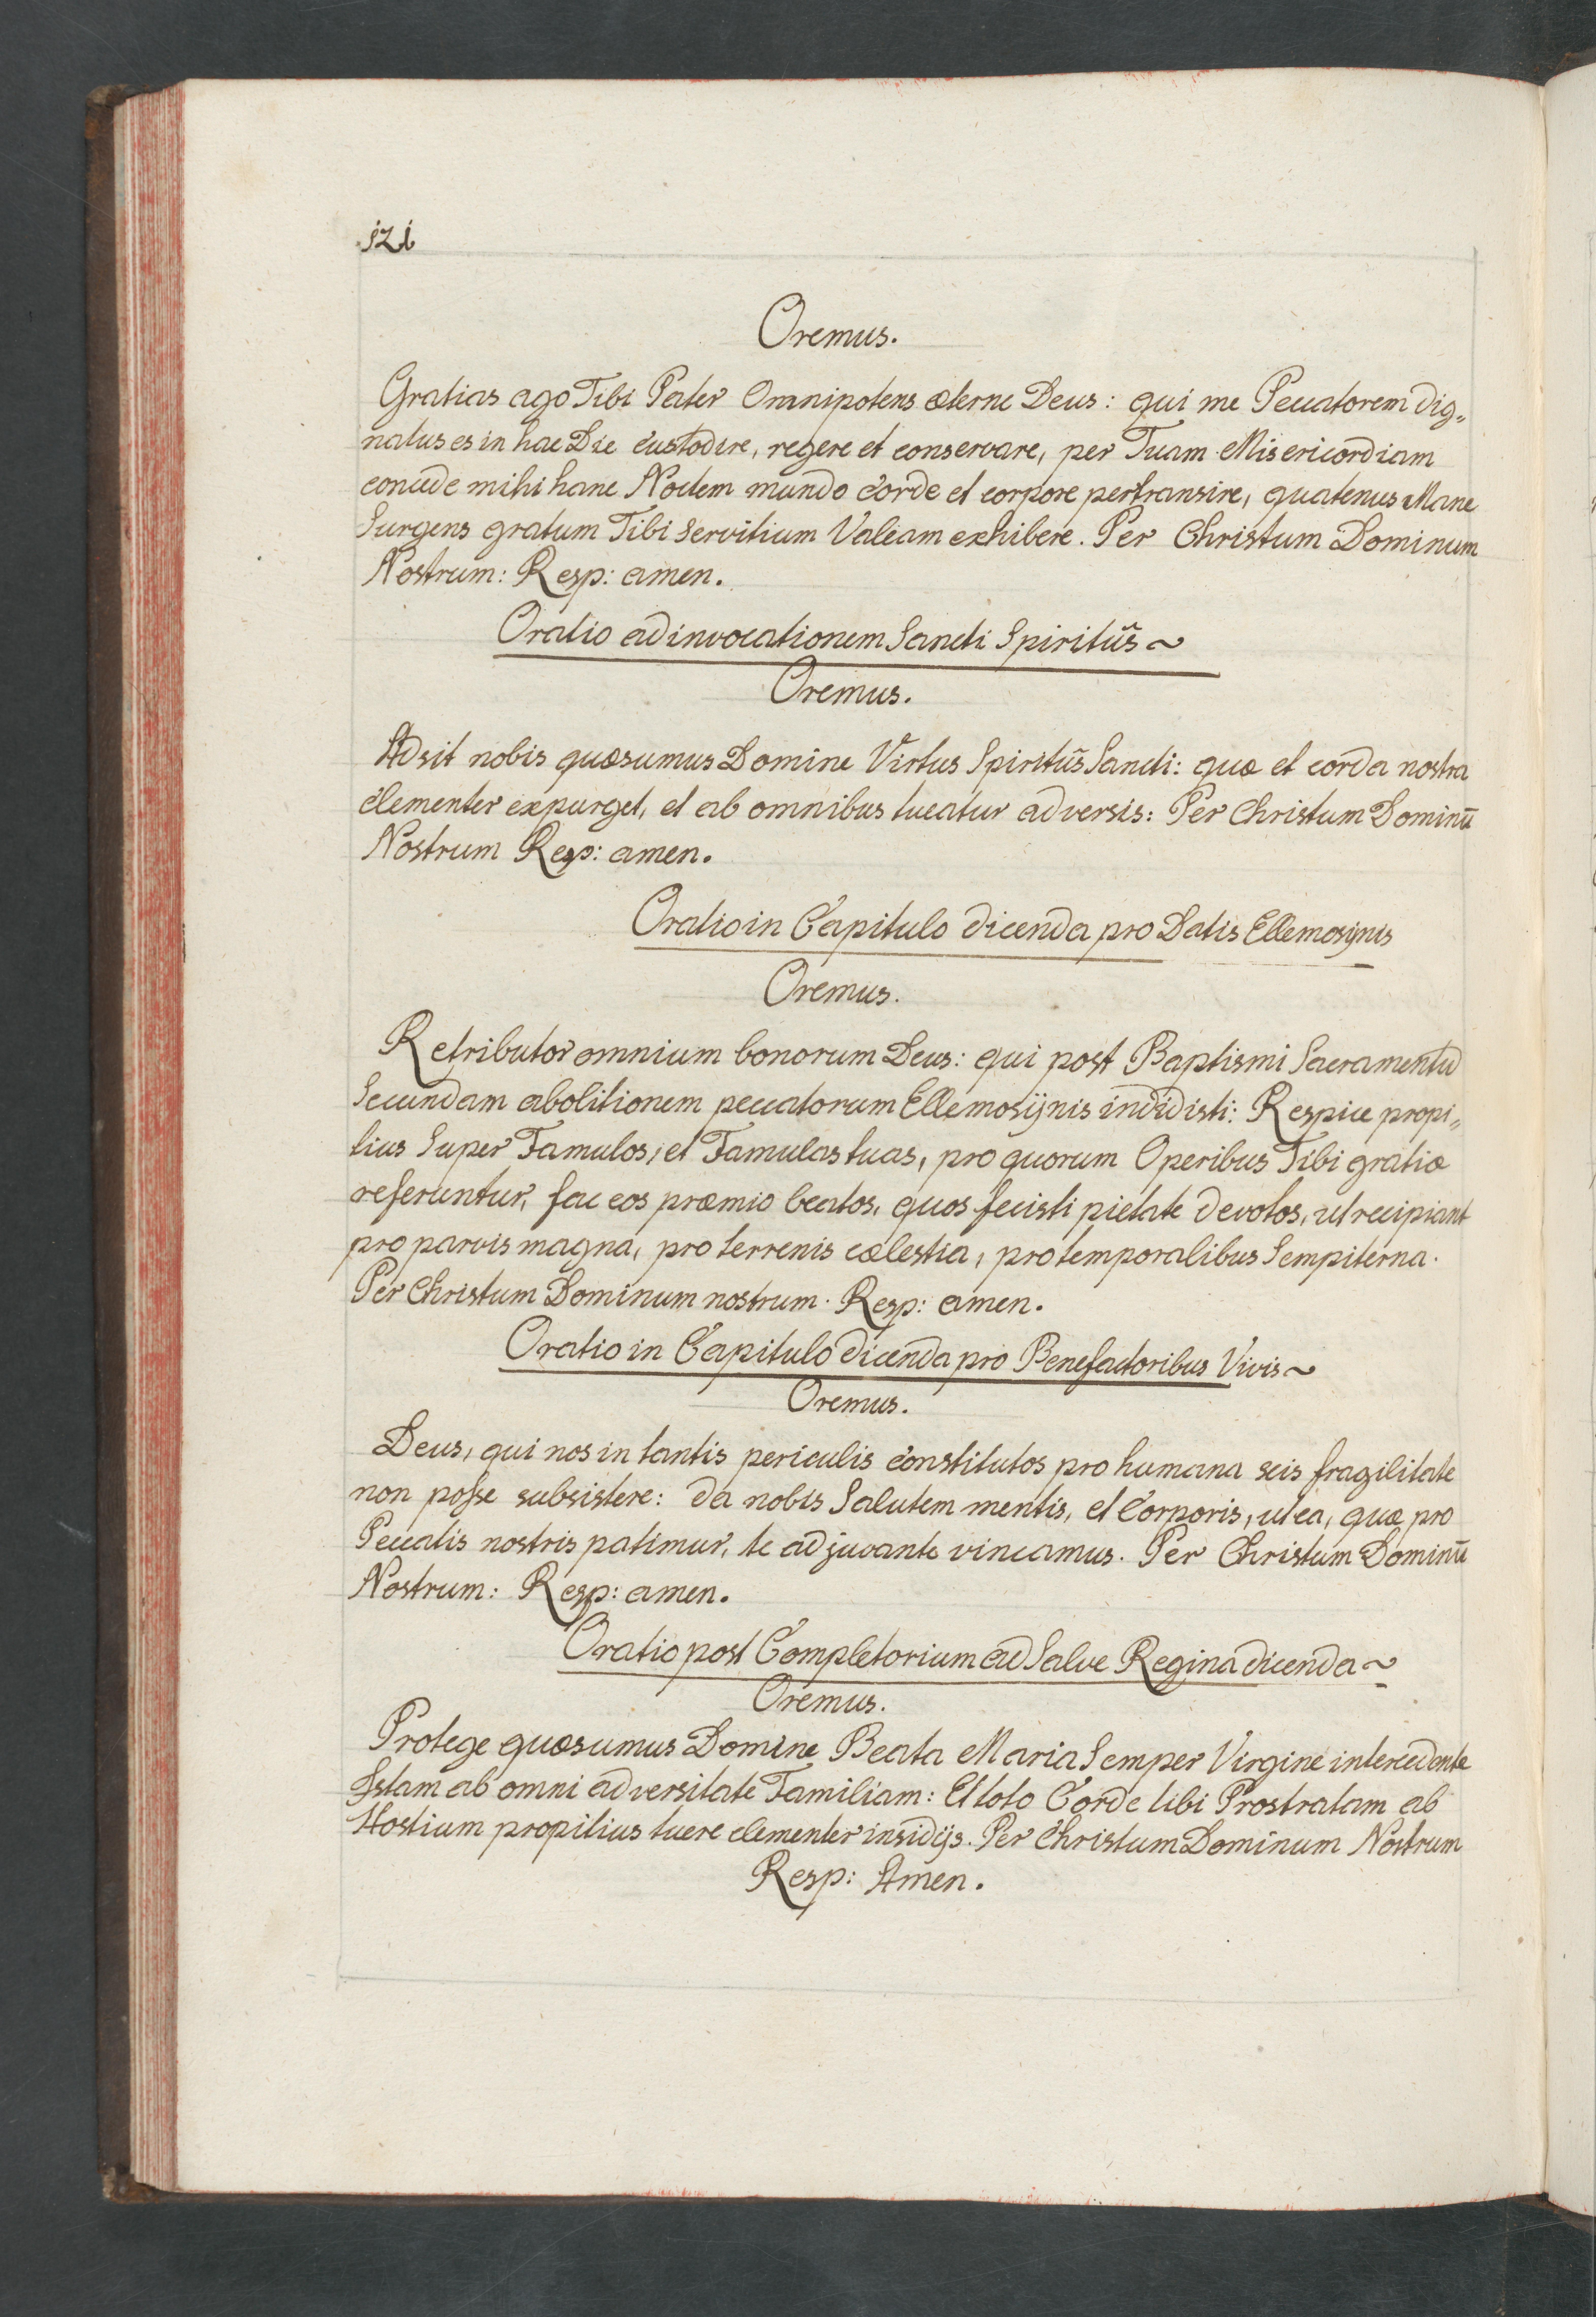 121
Oremus.
Gratias ago Tibi Pater Omnipotens æterne Deus: qui me Peccatorem dig„
natus es in hac Die custodire, regere et conservare, per Tuam Misericordiam
concede mihi hanc Noctem mundo corde et corpore pertransire, quatenus Mane
Surgens gratum Tibi servitium Valeam exhibere. Per Christum Dominum
Nostrum: Resp: amen.
Oratio ad invocationem Sancti Spiritûs ~
Oremus.
Adsit nobis quæsumus Domine Virtus Spiritûs Sancti: quæ et corda nostra
clementer expurget, et ab omnibus tueatur adversis: Per Christum Dominū
Nostrum Resp: amen.
Oratio in Capitulo dicenda pro Datis Ellemosijnis
Oremus.
Retributor omnium bonorum Deus: qui post Baptismi Sacramentū
Secundam abolitionem peccatorum Ellemosijnis indidisti: Respice propi„
tius Super Famulos, et Famulas tuas, pro quorum Operibus Tibi gratiæ
referuntur, fac eos præmio beatos, quos fecisti pietate devotos, ut recipiant
pro parvis magna, pro terrenis cælestia, pro temporalibus Sempiterna.
Per Christum Dominum nostrum. Resp: amen.
Oratio in Capitulo dicenda pro Benefactoribus Vivis ~
Oremus.
Deus, qui nos in tantis periculis constitutos pro humana scis fragilitate
non posse subsistere: da nobis Salutem mentis, et Corporis, ut ea, quæ pro
Peccatis nostris patimur, te adjuvante vincamus. Per Christum Dominū
Nostrum: Resp: amen.
Oratio post Completorium ad Salve Regina dicenda ~
Oremus.
Protege quæsumus Domine Beata Maria Semper Virgine intercedente
Istam ab omni adversitate Familiam: Et toto Corde tibi Prostratam ab
Hostium propitius tuere clementer insidijs. Per Christum Dominum Nostrum
Resp: Amen.